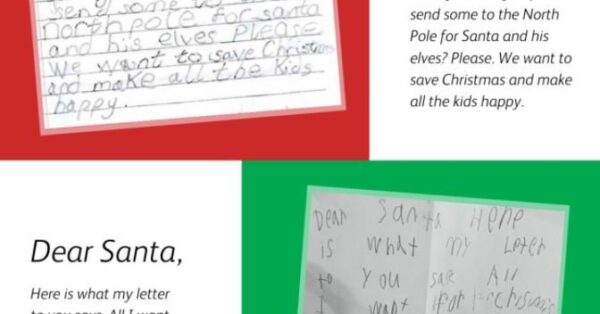 send some to the
northpole for santa
and his elves Please
we want to save Christmas
and make all the kids
happy.
send some to the North
Pole for Santa and his
elves? Please. We want to
save Christmas and make
all the kids happy.
Dear Santa,
Here is what my letter
to you says. All I want
Dear Santa Here
is what my Leter
to you sae All
I want For